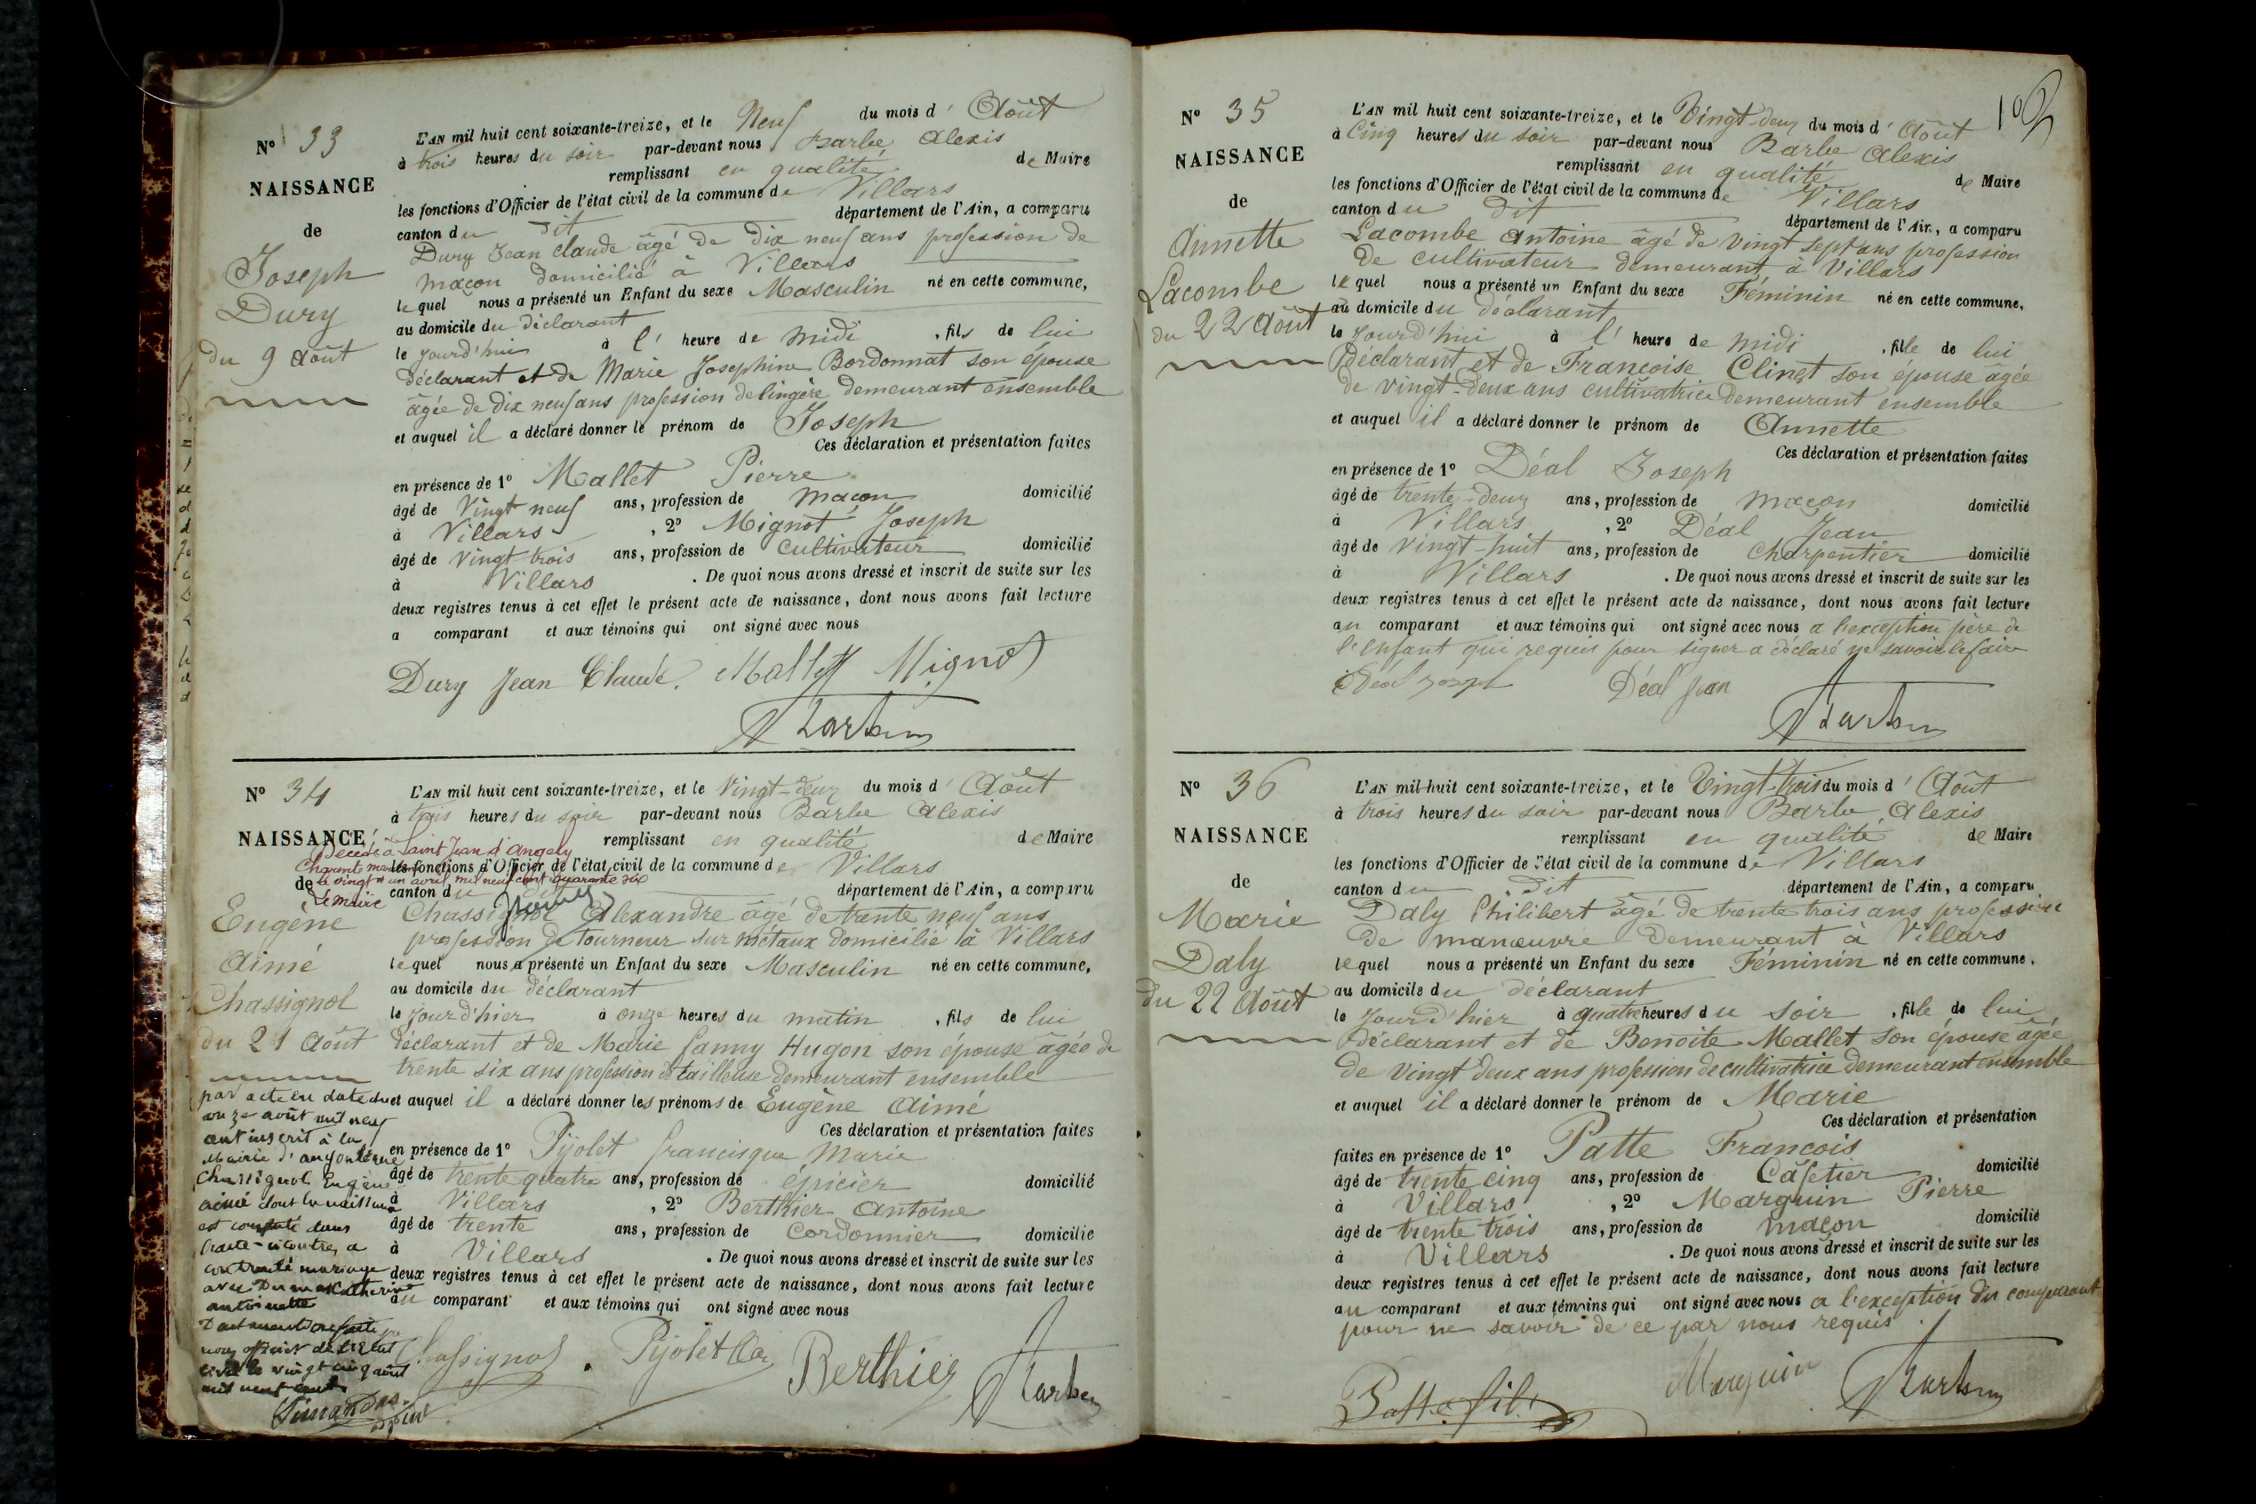 Nº 33
NAISSANCE
de
Joseph
Dury
du 9 août
L'AN mil huit cent soixante-treize, et le Neuf du mois d' Août
à trois heures du soir par-devant nous Barbe Alexis
remplissant en qualité de Maire
les fonctions d'Officier de l'état civil de la commune de Villars
canton du dit département de l'Ain, a comparu
Dury Jean Claude âgé de Dix neuf ans profession de
maçon domicilié à Villars
lequel nous a présenté un Enfant du sexe Masculin né en cette commune,
au domicile du déclarant
le jourd'hui à l' heure de midi , fils de lui
déclarant et de Marie Josephine Bordonnat son épouse
âgée de dix neuf ans profession de lingère demeurant ensemble
et auquel il a déclaré donner le prénom de Joseph
Ces déclaration et présentation faites
en présence de 1º Mallet Pierre
âgé de Vingt neuf ans, profession de maçon domicilié
à Villars , 2º Mignot Joseph
âgé de vingt trois ans, profession de cultivateur domicilié
à Villars . De quoi nous avons dressé et inscrit de suite sur les
deux registres tenus à cet effet le présent acte de naissance, dont nous avons fait lecture
a comparant et aux témoins qui ont signé avec nous
Dury Jean Claude. Mallet Mignot
Barbe
Nº 34
NAISSANCE
de
Décédé à Saint Jean d'Angely
Charente marit
le vingt un avril mil neuf cent quarante six
Le Maire
Eugène
Aimé
Chassignol
du 21 Août
par acte en date du
onze août mil neuf
cent inscrit à la
Mairie d'angoulème
Chassignol Eugène
aimé dont la naissance
est constaté dans
l'acte-ci contre, a
contracté mariage
avec Dumas Catherine
antoinette
Dont mention faite par
nous officier de l'Etat
civil le vingt cinq août
mil neuf cent
L'AN mil huit cent soixante-treize, et le Vingt-deux du mois d' Août
à trois heures du soir par-devant nous Barbe Alexis
remplissant en qualité de Maire
les fonctions d'Officier de l'état civil de la commune de Villars
canton du département de l'Ain, a comparu
Chassignol Alexandre âgé de trente neuf ans
profession de tourneur sur métaux domicilié à Villars
lequel nous a présenté un Enfant du sexe Masculin né en cette commune,
au domicile du déclarant
le jourd'hier à onze heures du matin , fils de lui
déclarant et de Marie fanny Hugon son épouse âgée de
trente six ans profession de tailleuse demeurant ensemble
et auquel il a déclaré donner les prénoms de Eugène Aimé
Ces déclaration et présentation faites
en présence de 1º Pijolet francisque Marie
âgé de trente quatre ans, profession de épicier domicilié
à Villars , 2º Berthier Antoine
âgé de trente ans, profession de Cordonnier domicilié
à Villars . De quoi nous avons dressé et inscrit de suite sur les
deux registres tenus à cet effet le présent acte de naissance, dont nous avons fait lecture
au comparant et aux témoins qui ont signé avec nous
Chassignol Pijolet Berthier Barbe
102
Nº 35
NAISSANCE
de
Annette
Lacombe
du 22 Août
L'AN mil huit cent soixante-treize, et le Vingt-deux du mois d' Août
à Cinq heures du soir par-devant nous Barbe Alexis
remplissant en qualité de Maire
les fonctions d'Officier de l'état civil de la commune de Villars
canton du dit département de l'Ain, a comparu
Lacombe Antoine âgé de vingt sept ans profession
de cultivateur demeurant à Villars
lequel nous a présenté un Enfant du sexe Féminin né en cette commune.
au domicile du déclarant
le jourd'hui à l' heure de midi , fille de lui
déclarant et de Françoise Clinet son épouse âgée
de vingt-deux ans cultivatrice demeurant ensemble
et auquel il a déclaré donner le prénom de Annette
Ces déclaration et présentation faites
en présence de 1º Déal Joseph
âgé de trente-deux ans, profession de maçon domicilié
à Villars , 2º Déal Jean
âgé de vingt-huit ans, profession de Charpentier domicilié
à Villars . De quoi nous avons dressé et inscrit de suite sur les
deux registres tenus à cet effet le présent acte de naissance, dont nous avons fait lecture
au comparant et aux témoins qui ont signé avec nous a l'exception père de
l'enfant qui requis pour signer a déclaré ne savoir le faire
Déal Joseph Déal Jean
Barbe
Nº 36
NAISSANCE
de
Marie
Daly
du 22 Août
L'AN mil huit cent soixante-treize, et le Vingt-trois du mois d' Août
à trois heures du soir par-devant nous Barbe Alexis
remplissant en qualité de Maire
les fonctions d'Officier de l'état civil de la commune de Villars
canton du dit département de l'Ain, a comparu
Daly Philibert âgé de trente trois ans profession
de manœuvre demeurant à Villars
lequel nous a présenté un Enfant du sexe Féminin né en cette commune.
au domicile du déclarant
le jourd'hier à quatre heures du soir , fille de lui
déclarant et de Benoite Mallet son épouse âgée
de vingt deux ans profession de cultivatrice demeurant ensemble
et auquel il a déclaré donner le prénom de Marie
Ces déclaration et présentation
faites en présence de 1º Patte François
âgé de trente cinq ans, profession de Cafetier domicilié
à Villars , 2º Marguin Pierre
âgé de trente trois ans, profession de maçon domicilié
à Villars . De quoi nous avons dressé et inscrit de suite sur les
deux registres tenus à cet effet le présent acte de naissance, dont nous avons fait lecture
au comparant et aux témoins qui ont signé avec nous a l'exception du comparant
pour ne savoir de ce par nous requis.
Patte fils Marguin Barbe